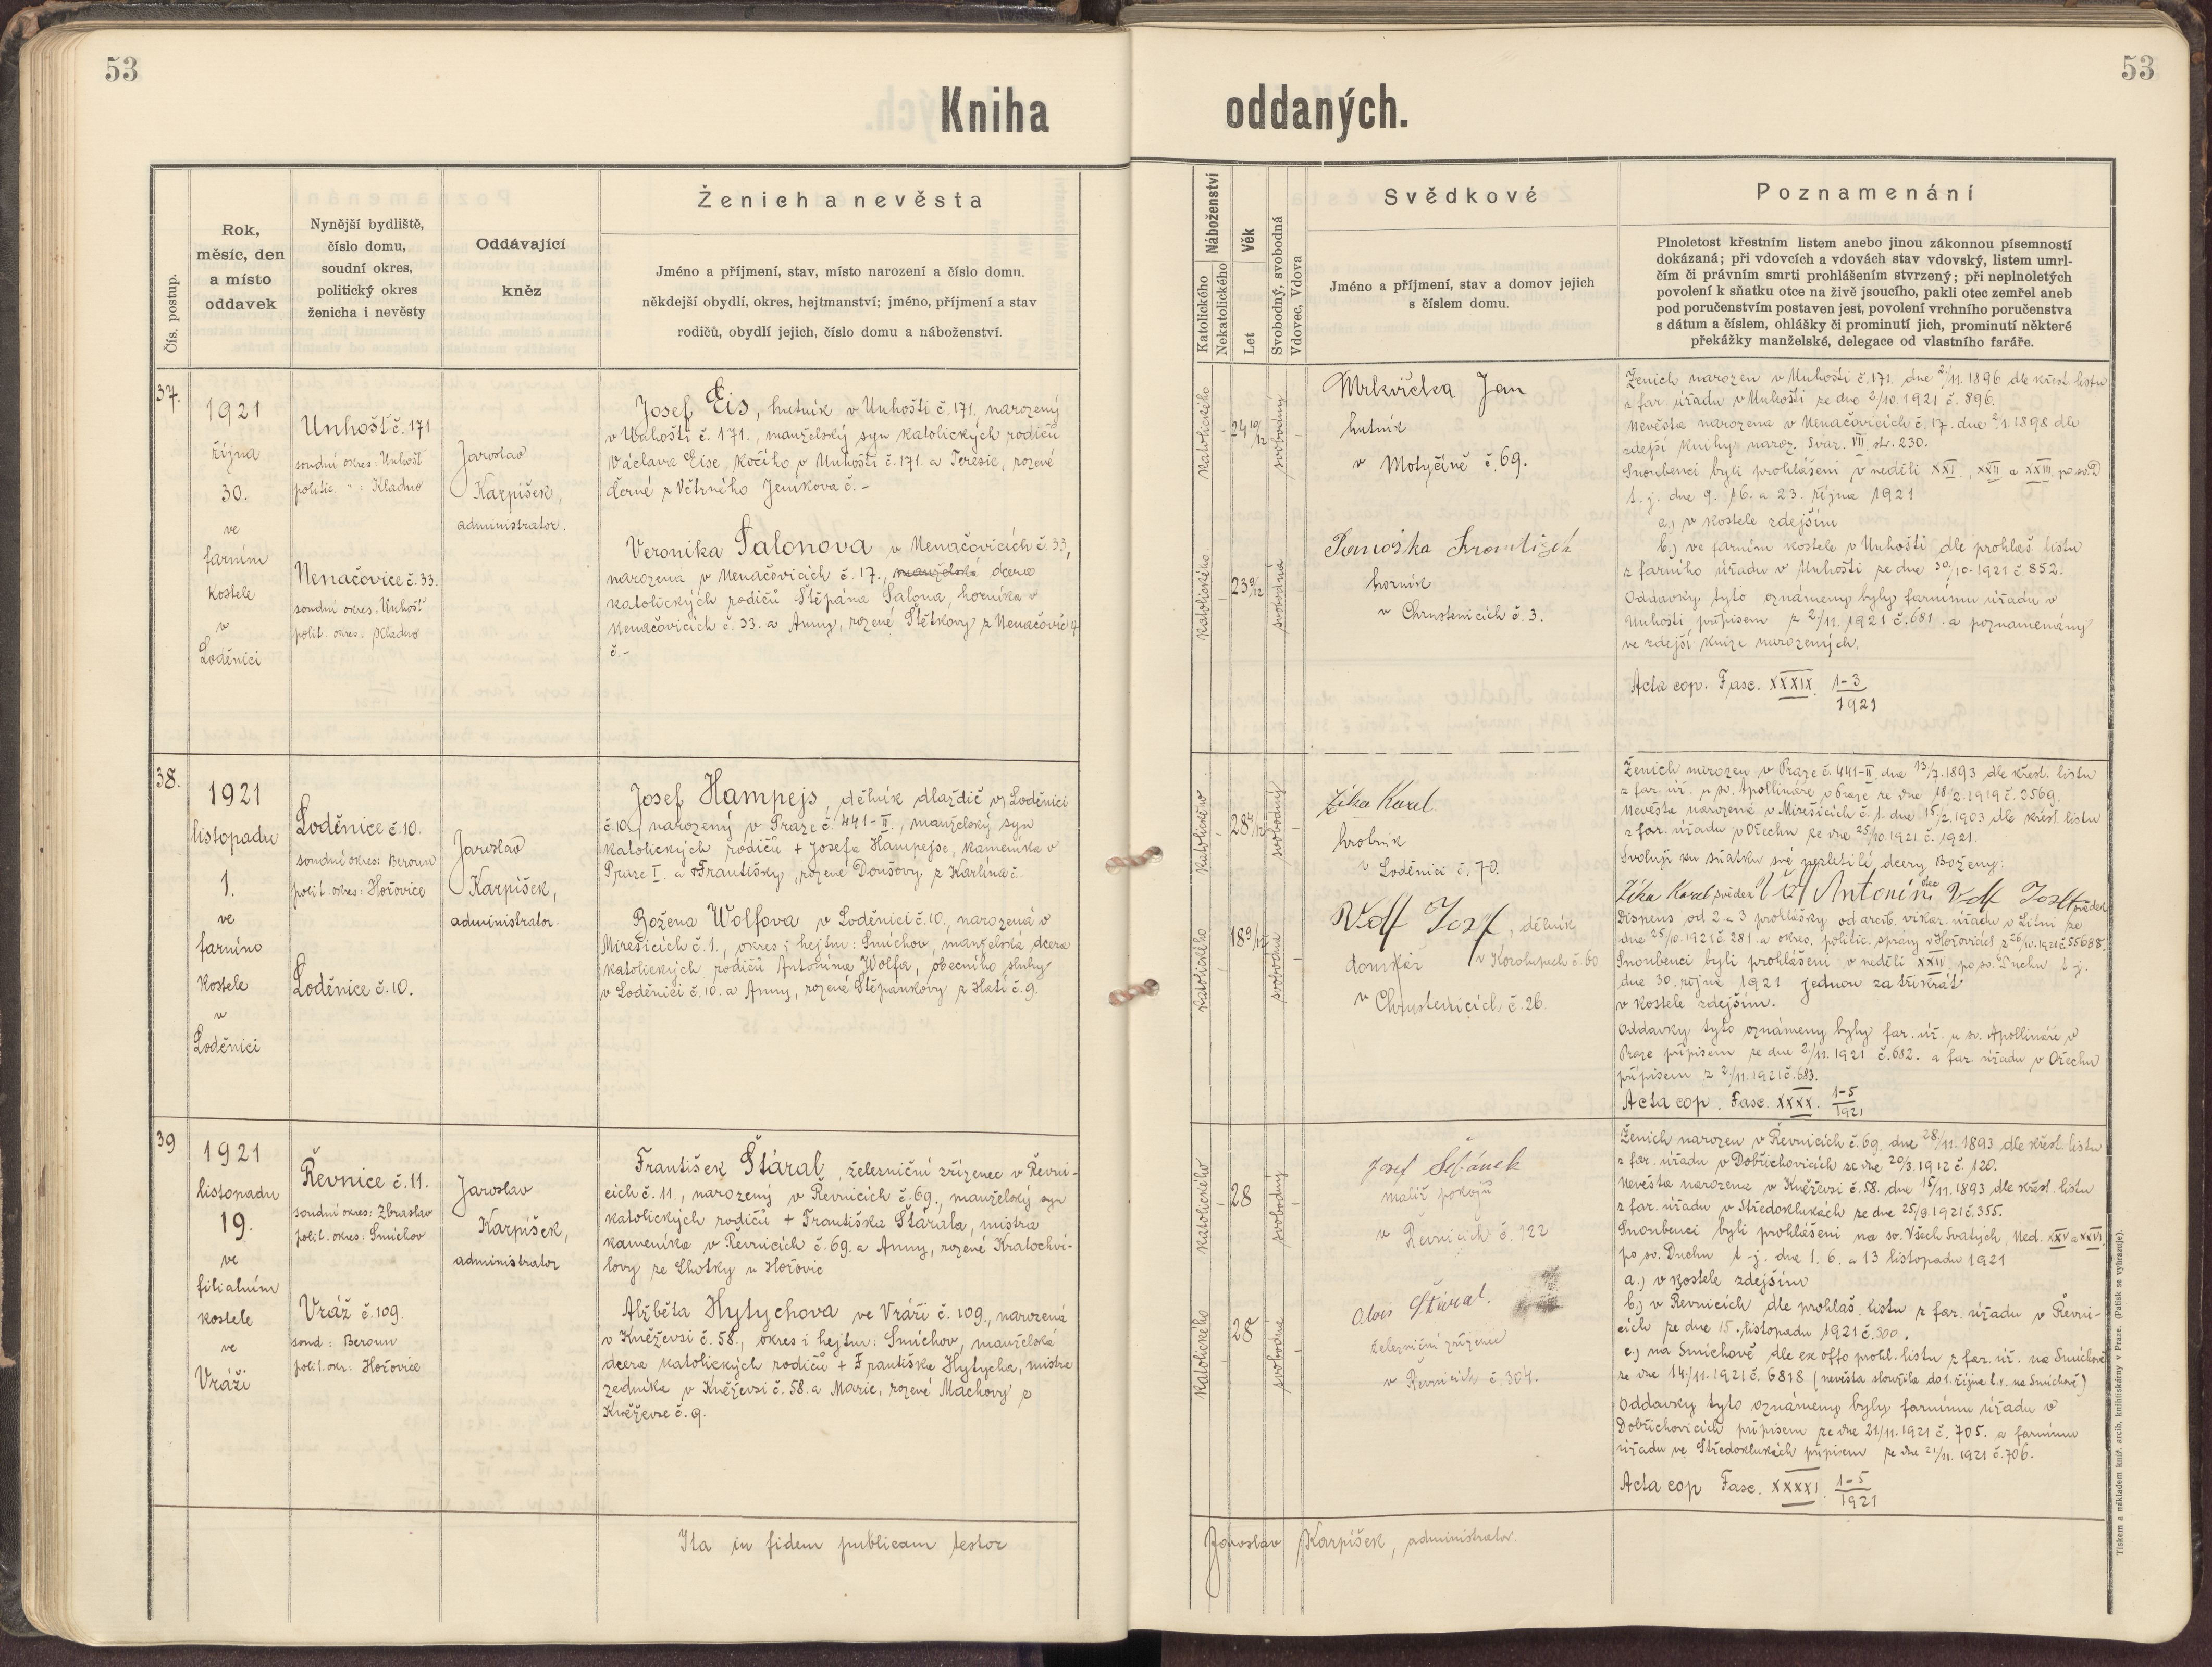 53
53
Kniha
oddaných.
Čís. postup.
Rok,
měsíc, den
a místo
oddavek
Nynější bydliště,
číslo domu,
soudní okres,
politický okres
ženicha i nevěsty
Oddávající
kněz
Ženich a nevěsta
Jméno a příjmení, stav, místo narození a číslo domu.
někdejší obydlí, okres, hejtmanství; jméno, příjmení a stav
rodičů, obydlí jejich, číslo domu a náboženství.
Náboženství
Katolického
Nokatolického
Věk
Let
Svobodný, svobodná
Vdovec, Vdova
Svědkové
Jméno a příjmení, stav a domov jejich
s číslem domu.
Poznamenání
Plnoletost křestním listem anebo jinou zákonnou písemností
dokázaná; při vdovcích a vdovách stav vdovský, listem umrl-
čím či právním smrti prohlášením stvrzený; při neplnoletých
povolení k sňatku otce na živě jsoucího, pakli otec zemřel aneb
pod poručenstvím postaven jest, povolení vrchního poručenstva
s dátum a číslem, ohlášky či prominutí jich, prominutí některé
překážky manželské, delegace od vlastního faráře.
37.
1921
října
30.
ve
farním
kostele
v
Loděnici
Unhošť č. 171
soudní okres: Unhošť
politic. " : Kladno
Nenačovice č. 33.
soudní okres: Unhošť
polit. okres: Kladno
Jaroslav
Karpíšek,
administrator.
Josef Eis, hutník v Unhošti č. 171, narozený
v Unhošti č. 171., manželský syn katolických rodičů
Václava Eise, kočího v Unhošti č. 171 a Terezie, rozené
Černé z Větrného Jeníkova č. -
Veronika Šalonova v Nenačovicích č. 33,
narozená v Nenačovicích č. 17., manželská dcera
katolických rodičů Štěpána Šalona, horníka v
Nenačovicích č. 33. a Anny, rozené Štětkovy z Nenačovic
č. -
katolického
24 10/12
svobodný
katolického
23 9/12
svobodná
Mrkvička Jan
hutník
v Motyčíně č. 69.
František
horník
v Chrustenicích č. 3.
Ženich narozen v Unhošti č. 171. dne 2/11. 1896 dle křest. listu
z far. úřadu v Unhošti ze dne 2/10. 1921 č. 896.
Nevěsta narozena v Nenačovicích č. 17. dne 2/1. 1898 dle
zdejší knihy naroz. Svaz. VII. str. 230.
Snoubenci byli prohlášeni v neděli XXI., XXII a XXIII po sv. D
t. j. dne 9. 16. a 23. října 1921
a.) v kostele zdejším
b.) ve farním kostele v Unhošti dle prohláš. listu
z farního úřadu v Unhošti ze dne 30/10. 1921 č. 852.
Oddavky tyto oznámeny byly farnímu úřadu v
Unhošti přípisem z 2/11. 1921 č. 681. a poznamenány
ve zdejší knize narozených.
Acta cop. Fasc. XXXIX. 1-3/1921
38.
1921
listopadu
1.
ve
farním
kostele
v
Loděnici
Loděnice č. 10.
soudní okres: Beroun
polit. okres: Hořovice
Loděnice č. 10.
Jaroslav
Karpíšek,
administrator.
Josef Hampejs, dělník dlaždič v Loděnici
č. 10, narozený v Praze č. 441-II., manželský syn
katolických rodičů + Josefa Hampejse, kameníka v
Praze I. a Františky, rozené Doušovy z Karlína č.
Božena Wolfova v Loděnici č. 10, narozená v
Mirešicích č. 1., okres i hejtm: Smíchov, manželská dcera
katolických rodičů Antonína Wolfa, obecního sluhy
v Loděnici č. 10. a Anny, rozené Štěpánkovy z Hatí č. 9.
katolického
28 4/12
svobodný
katolického
18 9/12
svobodná
Zíka Karel
hrobník
v Loděnici č. 70.
Wolf Josef, dělník
v Kozolupech č. 60
domkář
v Chrustenicích č. 26.
Ženich narozen v Praze č. 441-II. dne 13/7. 1893 dle křest. listu
z far. úř. u sv. Apollináře v Praze ze dne 18/2. 1919 č. 2569.
Nevěsta narozena v Mirešicích č. 1. dne 15/2. 1903 dle křest. listu
z far. úřadu v Ořechu ze dne 25/10. 1921 č. 1921.
Svoluji ku sňatku své nezletilé dcery Boženy:
Zíka Karel svědek Volf Antonín otec Volf Josef svědek
Dispens od 2. a 3 prohlášky od arcib. vikar. úřadu v Litni ze
dne 25/10. 1921 č. 281. a okres. politic. správy v Hořovicích z 26/10. 1921 č. 55688.
Snoubenci byli prohlášeni v neděli XXIV. po sv. Duchu t. j.
dne 30. října 1921 jednou za třikrát
v kostele zdejším.
Oddavky tyto oznámeny byly far. úř. u sv. Apollináře v
Praze přípisem ze dne 2/11. 1921 č. 682. a far. úřadu v Ořechu
přípisem z 2/11. 1921 č. 683.
Acta cop. Fasc. XXXX. 1-5/1921
39
1921
listopadu
19.
ve
filialním
kostele
ve
Vráži
Řevnice č. 11.
soudní okres: Zbraslav
polit. okres: Smíchov
Vráž č. 109.
soud: Beroun
polit. okr: Hořovice
Jaroslav
Karpíšek,
administrator
František Štáral, železniční zřízenec v Řevni-
cích č. 11., narozený v Řevnicích č. 69., manželský syn
katolických rodičů + Františka Štárala, mistra
kameníka v Řevnicích č. 69. a Anny, rozené Kratochví-
lovy ze Lhotky u Hořovic
Alžběta Hytychova ve Vráži č. 109., narozená
v Kněževsi č. 58., okres i hejtm: Smíchov, manželská
dcera katolických rodičů + Františka Hytycha, mistra
zedníka v Kněževsi č. 58. a Marie, rozené Machovy z
Kněževse č. 9.
katolického
28
svobodný
katolického
28
svobodná
Josef Šebánek
malíř pokojů
v Řevnicích č. 122
Alois Štáral.
železniční zřízenec
v Řevnicích č. 304.
Ženich narozen v Řevnicích č. 69. dne 28/11. 1893 dle křest. listu
z far. úřadu v Dobřichovicích ze dne 20/3. 1912 č. 120.
Nevěsta narozena v Kněževsi č. 58. dne 15/11. 1893 dle křest. listu
z far. úřadu v Středoklukách ze dne 25/9. 1921 č. 355.
Snoubenci byli prohlášeni na sv. Všech Svatých, Ned. XXV a XXVI
po sv. Duchu t. j. dne 1. 6. a 13 listopadu 1921
a.) v kostele zdejším
b.) v Řevnicích dle prohláš. listu z far. úřadu v Řevni-
cích ze dne 15. listopadu 1921 č. 300.
c.) na Smíchově dle ex offo prohl. listu z far. úř. na Smíchově
ze dne 14/11. 1921 č. 6818 (nevěsta sloužila do 1. října t. r. na Smíchově)
Oddavky tyto oznámeny byly farnímu úřadu v
Dobřichovicích přípisem ze dne 21/11. 1921 č. 705. a farnímu
úřadu ve Středoklukách přípisem ze dne 21/11. 1921 č. 706.
Acta cop Fasc. XXXXI. 1-5/1921
Ita in fidem publicam testor
Jaroslav Karpíšek, administrator.
Tiskem a nákladem kníž. arcib. knihtiskárny v Praze. (Patisk se vyhrazuje).